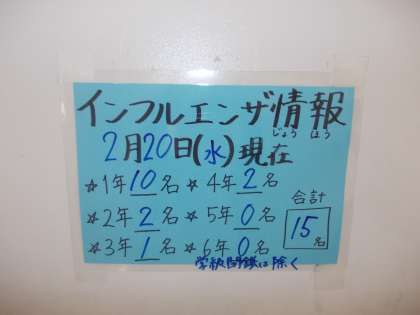 インフルエンザ情報
じょう ほう
2月20日(水)現在
☆1年 10名 ☆4年 2名
☆2年 2名 ☆5年 0名
☆3年 1名 ☆6年 0名
合計
15名
学級閉鎖は除く